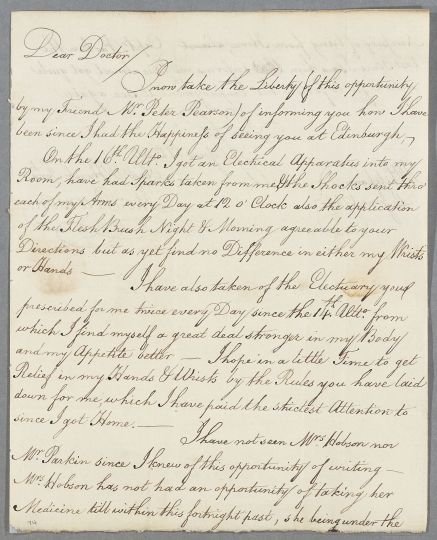 Dear Doctor/
I now take the Liberty (of this opportunity
by my Friend Mr. Peter Pearson) of informing you how I have
been since I had the Happiness of seeing you at Edinburgh,
On the 16th Ulto. I got an Electical Apparatus into my
Room, have had Sparks taken from me & the Shocks sent thro'
each of my Arms every Day at 12 o'Clock also the application
of the Flesh Brush Night & Morning agreeable to your
Directions but as yet find no Difference in either my Wrists
or Hands —
I have also taken of the Electuary you
prescribed for me twice every Day since the 14th Ulto. from
which I find myself a great deal stronger in my Body
and my Appetite better — I hope in a little Time to get
Relief in my Hands & Wrists by the Rules you have laid
down for me, which I have paid the strictest Attention to
since I got Home. —
I have not seen Mrs Hobson nor
Mr. Parkin since I knew of this opportunity of writing —
Mrs Hobson has not had an opportunity of taking her
Medicine till within this fortnight past, she being under the